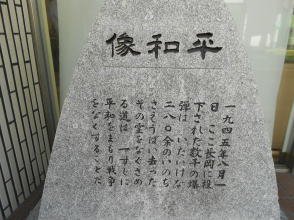 平和像
一九四五年八月一
日、ここ長岡に投
下された数千の爆
弾は、いたいけな
二八〇余のいのち
さえうばい去った
その霊をなぐさめ
る道は 一すじに
平和をまもり戦争
をなくすることだ